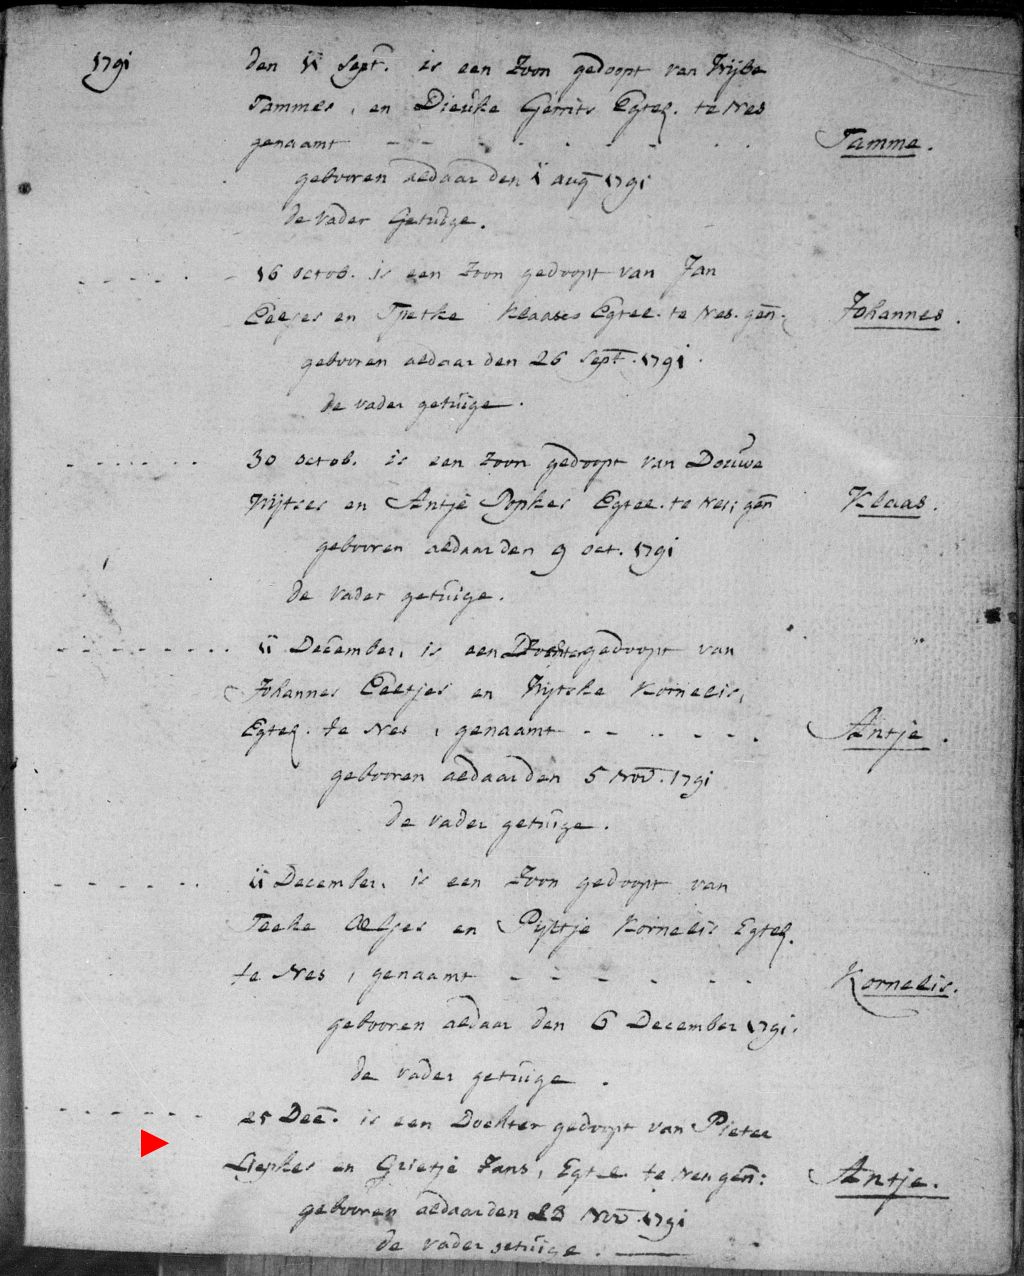 1791 den 11 Sept. is een Zoon gedoopt van Wijbe
Tammes, en Dieuke Gerrits Egtel. te Nes
genaamt - - - - - - - - Tamme.
gebooren aldaar den 1 aug 1791
de vader Getuige.
- - - - - - 16 octob. is een zoon gedoopt van Jan
Eelses en Tjietke Klaases Egtel. te Nes. gen. Johannes.
gebooren aldaar den 26 Sept. 1791.
de vader getuige.
- - - - - - 30 octob. is een zoon gedoopt van Douwe
Wijtses en Antje Popkes Egtel. te Nes; gen Klaas.
gebooren aldaar den 9 oct. 1791
de vader getuige.
- - - - - - - - 11 December, is een Dochter gedoopt van "
Johannes Eeltjes en Wijtske Kornelis,
Egtel. te Nes, genaamt - - - - - - Antje.
gebooren aldaar den 5 Nov. 1791
de vader getuige.
- - - - - - 11 December, is een Zoon gedoopt van
Teeke Oelses en Pijttje Kornelis Egtel.
te Nes, genaamt - - - - - - Kornelis.
gebooren aldaar den 6 December 1791.
de vader getuige.
- - - - - - - - 25 Dec. is een Dochter gedoopt van Pieter
Liepkes en Grietje Jans, Egtel. te Nes gen: Antje.
gebooren aldaar den 23 Nov. 1791
de vader getuige.